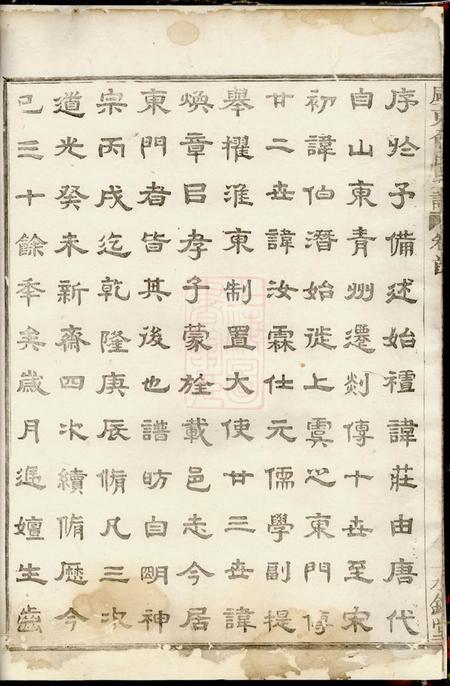 序於予備述始禋諱莊由唐代
自山東青州遷剡傳十世至宋
初諱伯潛始徙上虞之東門傳
廿二世諱汝霖仕元儒學副提
舉擢淮東制置大使廿三世諱
煥章㠯孝子蒙旌載邑志今居
東門者皆其後也譜昉自朙神
宗丙戌迄乾隆庚辰脩凡三次
道光癸未新齋四次續脩歷今
已三十餘年矣歲月遞嬗生齒